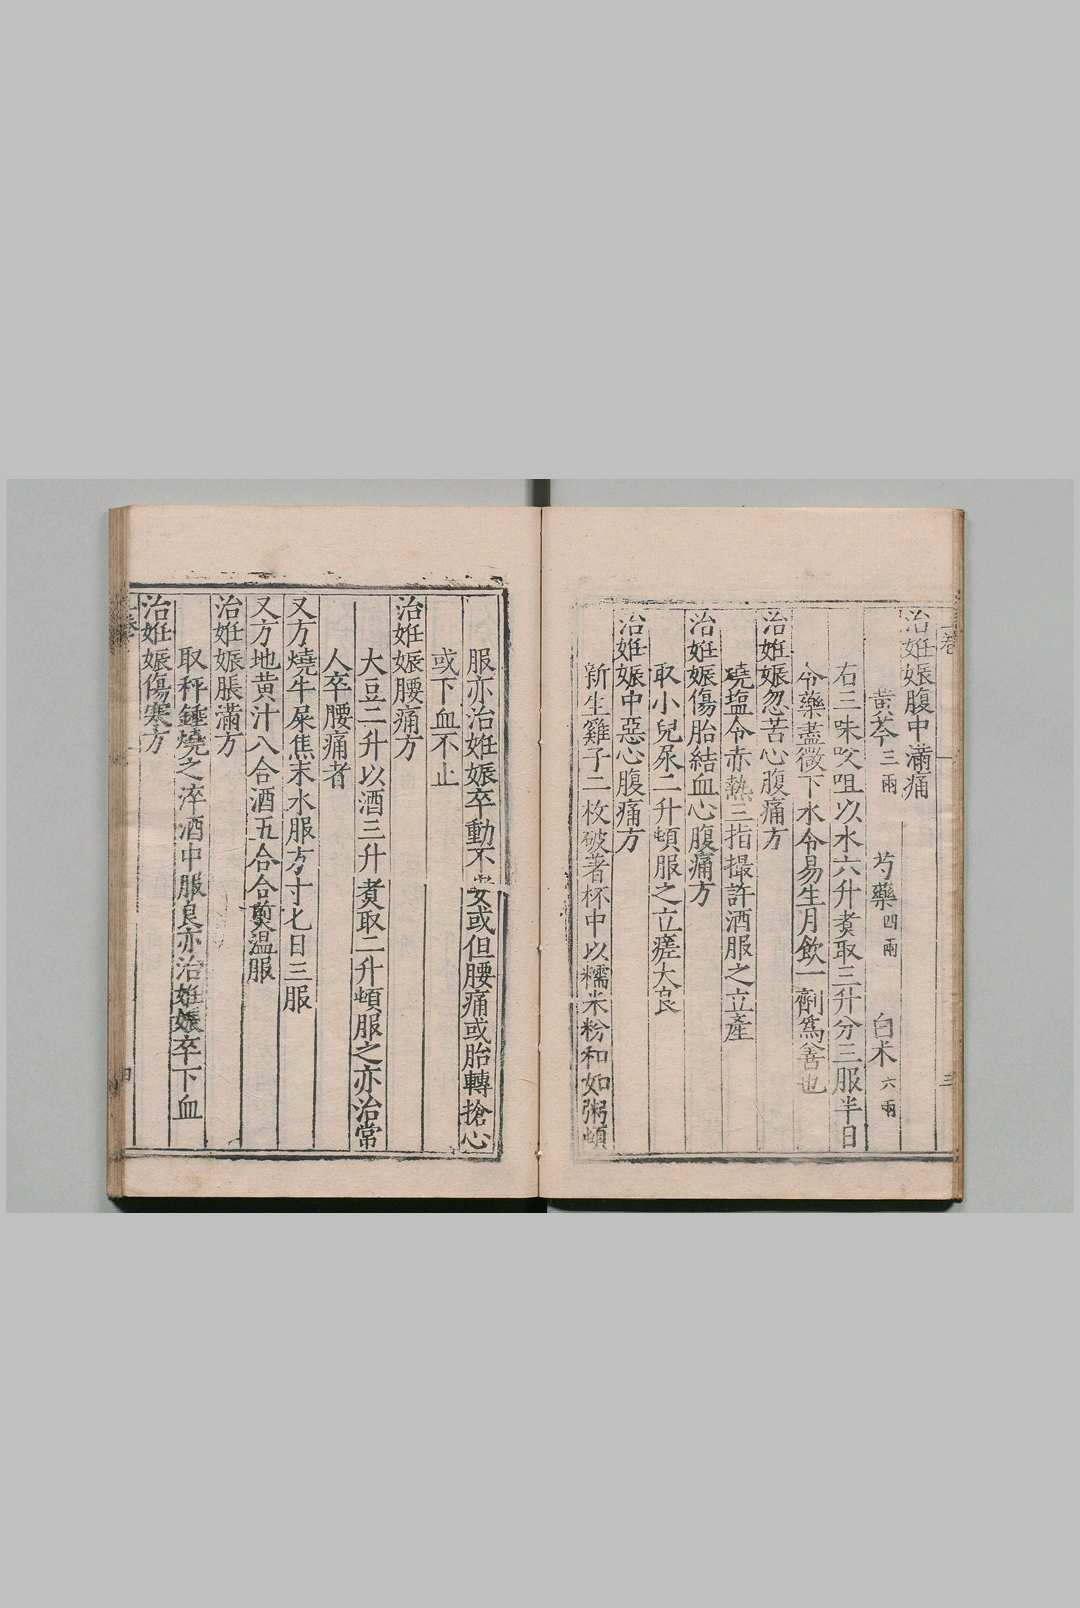 治妊娠腹中滿痛
黃芩三兩 芍藥四兩 白术六兩
右三味㕮咀以水六升煑取三升分三服半日
令藥盡微下水令易生月飲一劑爲善也
治妊娠忽苦心腹痛方
燒塩令赤熱三指撮許酒服之立產
治妊娠傷胎結血心腹痛方
取小兒尿二升頓服之立瘥大良
治妊娠中惡心腹痛方
新生雞子二枚破著杯中以糯米粉和如粥頓
服亦治妊娠卒動不安或但腰痛或胎轉搶心
或下血不止
治妊娠腰痛方
大豆二升以酒三升煑取二升頓服之亦治常
人卒腰痛者
又方燒牛屎焦末水服方寸匕日三服
又方地黃汁八合酒五合合煎温服
治妊娠脹滿方
取秤錘燒之淬酒中服良亦治妊娠卒下血
治妊娠傷寒方